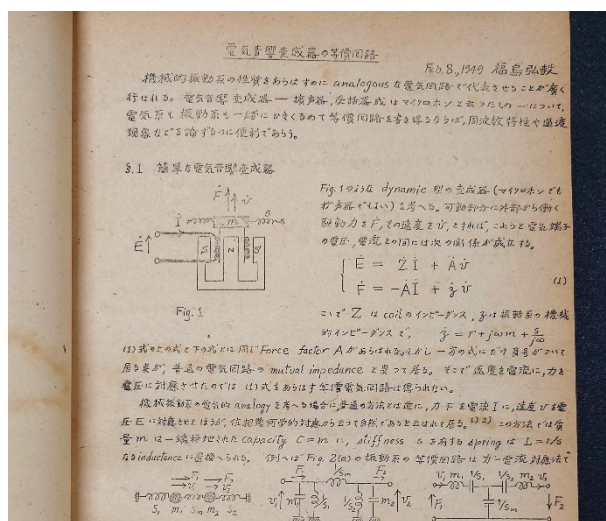 電気音響変成器の等價回路
Feb. 8, 1949 福島弘毅
機械的振動系の性質をあらはすのに analogous な電気回路で代表させることが廣く
行はれる。電気音響変成器 — 擴声器,受話器或はマイクロホンと云ったもの — について,
電気系も振動系も一緒にひきくるめて等價回路を書き得るならば,周波数特性や過渡
現象などを論ずるのに便利であらう。
§.1 簡單な電気音響変成器
Fig. 1のような dynamic 型の変成器(マイクロホンでも
拡声器でもよい)を考へる。可動部分に外部から働く
駆動力を Ḟ, その速度を v̇, とすれば, これらと電気端子
の電圧,電流との間には次の関係が成立する。
Ė = Żİ + Ȧv̇
Ḟ = -Ȧİ + żẏ v̇
(1)
Ė İ Ḟ v̇ m S N S
Fig. 1
こゝで Z は coil のインピーダンス, ż は振動系の機械
的インピーダンスで, ż = r + jωm + s/jω
(1)式の上の式と下の式とに同じ Force factor A があらはれる。しかし一方の式にだけ負号がついて
居る点が,普通の電気回路の mutual impedance と異って居る。そこで速度を電流に,力を
電圧に対應させたのでは (1)式をあらはす等價電気回路は得られない。
機械振動系の電気的 analogy を考へる場合に普通の方法とは逆に,力 F を電流 I に,速度 v を電
圧 E に対應させたほうが,位相幾何学的対應から云って自然であると云はれて居る。1)2) この方法では質
量 m は一端接地された capacity C = m に, stiffness s を有する spring は L = 1/s
なる inductance に置換へられる。例へば Fig. 2(a) の振動系の等價回路は力—電流対應法で
F₁ v₁ F₂ v₂
S₁ m₁ Sm m₂ S₂
F₁ 1/Sm F₂ v₁ m₁ 1/S₁ 1/S₂ m₂ v₂
v₁ m₁ 1/S₁ 1/S₂ m₂ v₂ F₁ 1/Sm F₂